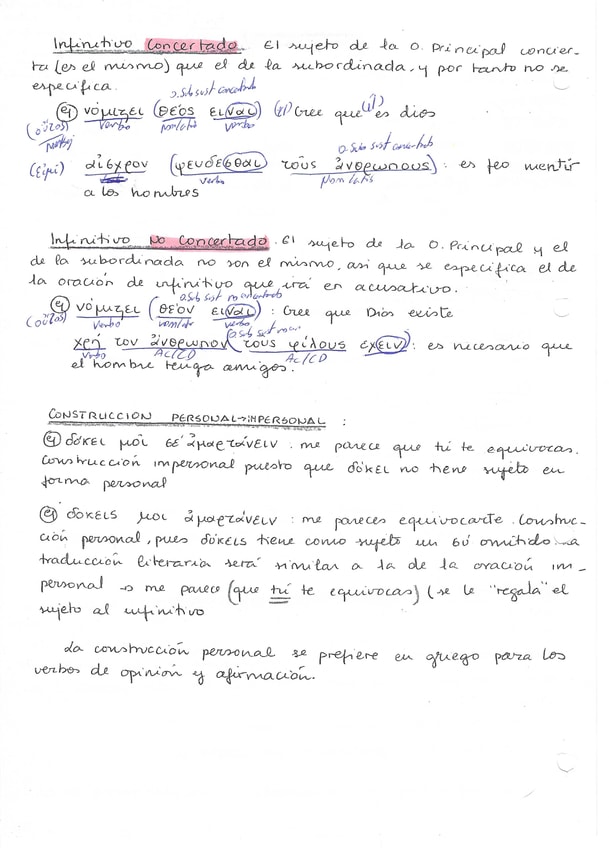 Infinitivo Concertado. El sujeto de la O. Principal concier-
ta (es el mismo) que el de la subordinada, y por tanto no se
especifica.
O.Sub sust concertado
ej νόμιζει (θεός ειναι) (él) Cree que (él) es dios
(οὗτος) verbo nom/atrib verbo
αἰσχρον (ψευδεσθαι τοῦς ἀνθρωπους): es feo mentir
O.Sub sust concertado
(εἰμι) verbo
a los hombres
Infinitivo No Concertado. El sujeto de la O. Principal y el
de la subordinada no son el mismo, asi que se especifica el de
la oración de infinitivo que irá en acusativo.
O.Sub sust no concertado
ej νόμιζει (θεόν ειναι): Cree que Dios existe
(οὗτος) verbo verbo
χρή τον ἀνθρωπον (τους φίλους εχειν): es necesario que
verbo Ac/CD Ac/CD
el hombre tenga amigos.
CONSTRUCCION PERSONAL→IMPERSONAL :
ej δόκει μοι σε ἁμαρτάνειν. me parece que tú te equivocas.
Construcción impersonal puesto que δόκει no tiene sujeto en
forma personal
ej δοκεις μοι ἁμαρτάνειν: me pareces equivocarte. Construc-
ción personal, pues δόκεις tiene como sujeto un σύ omitido. La
traducción literaria será similar a la de la oración im-
personal → me parece (que tú te equivocas) (se le "regala" el
sujeto al infinitivo
La construcción personal se prefiere en griego para los
verbos de opinión y afirmación.